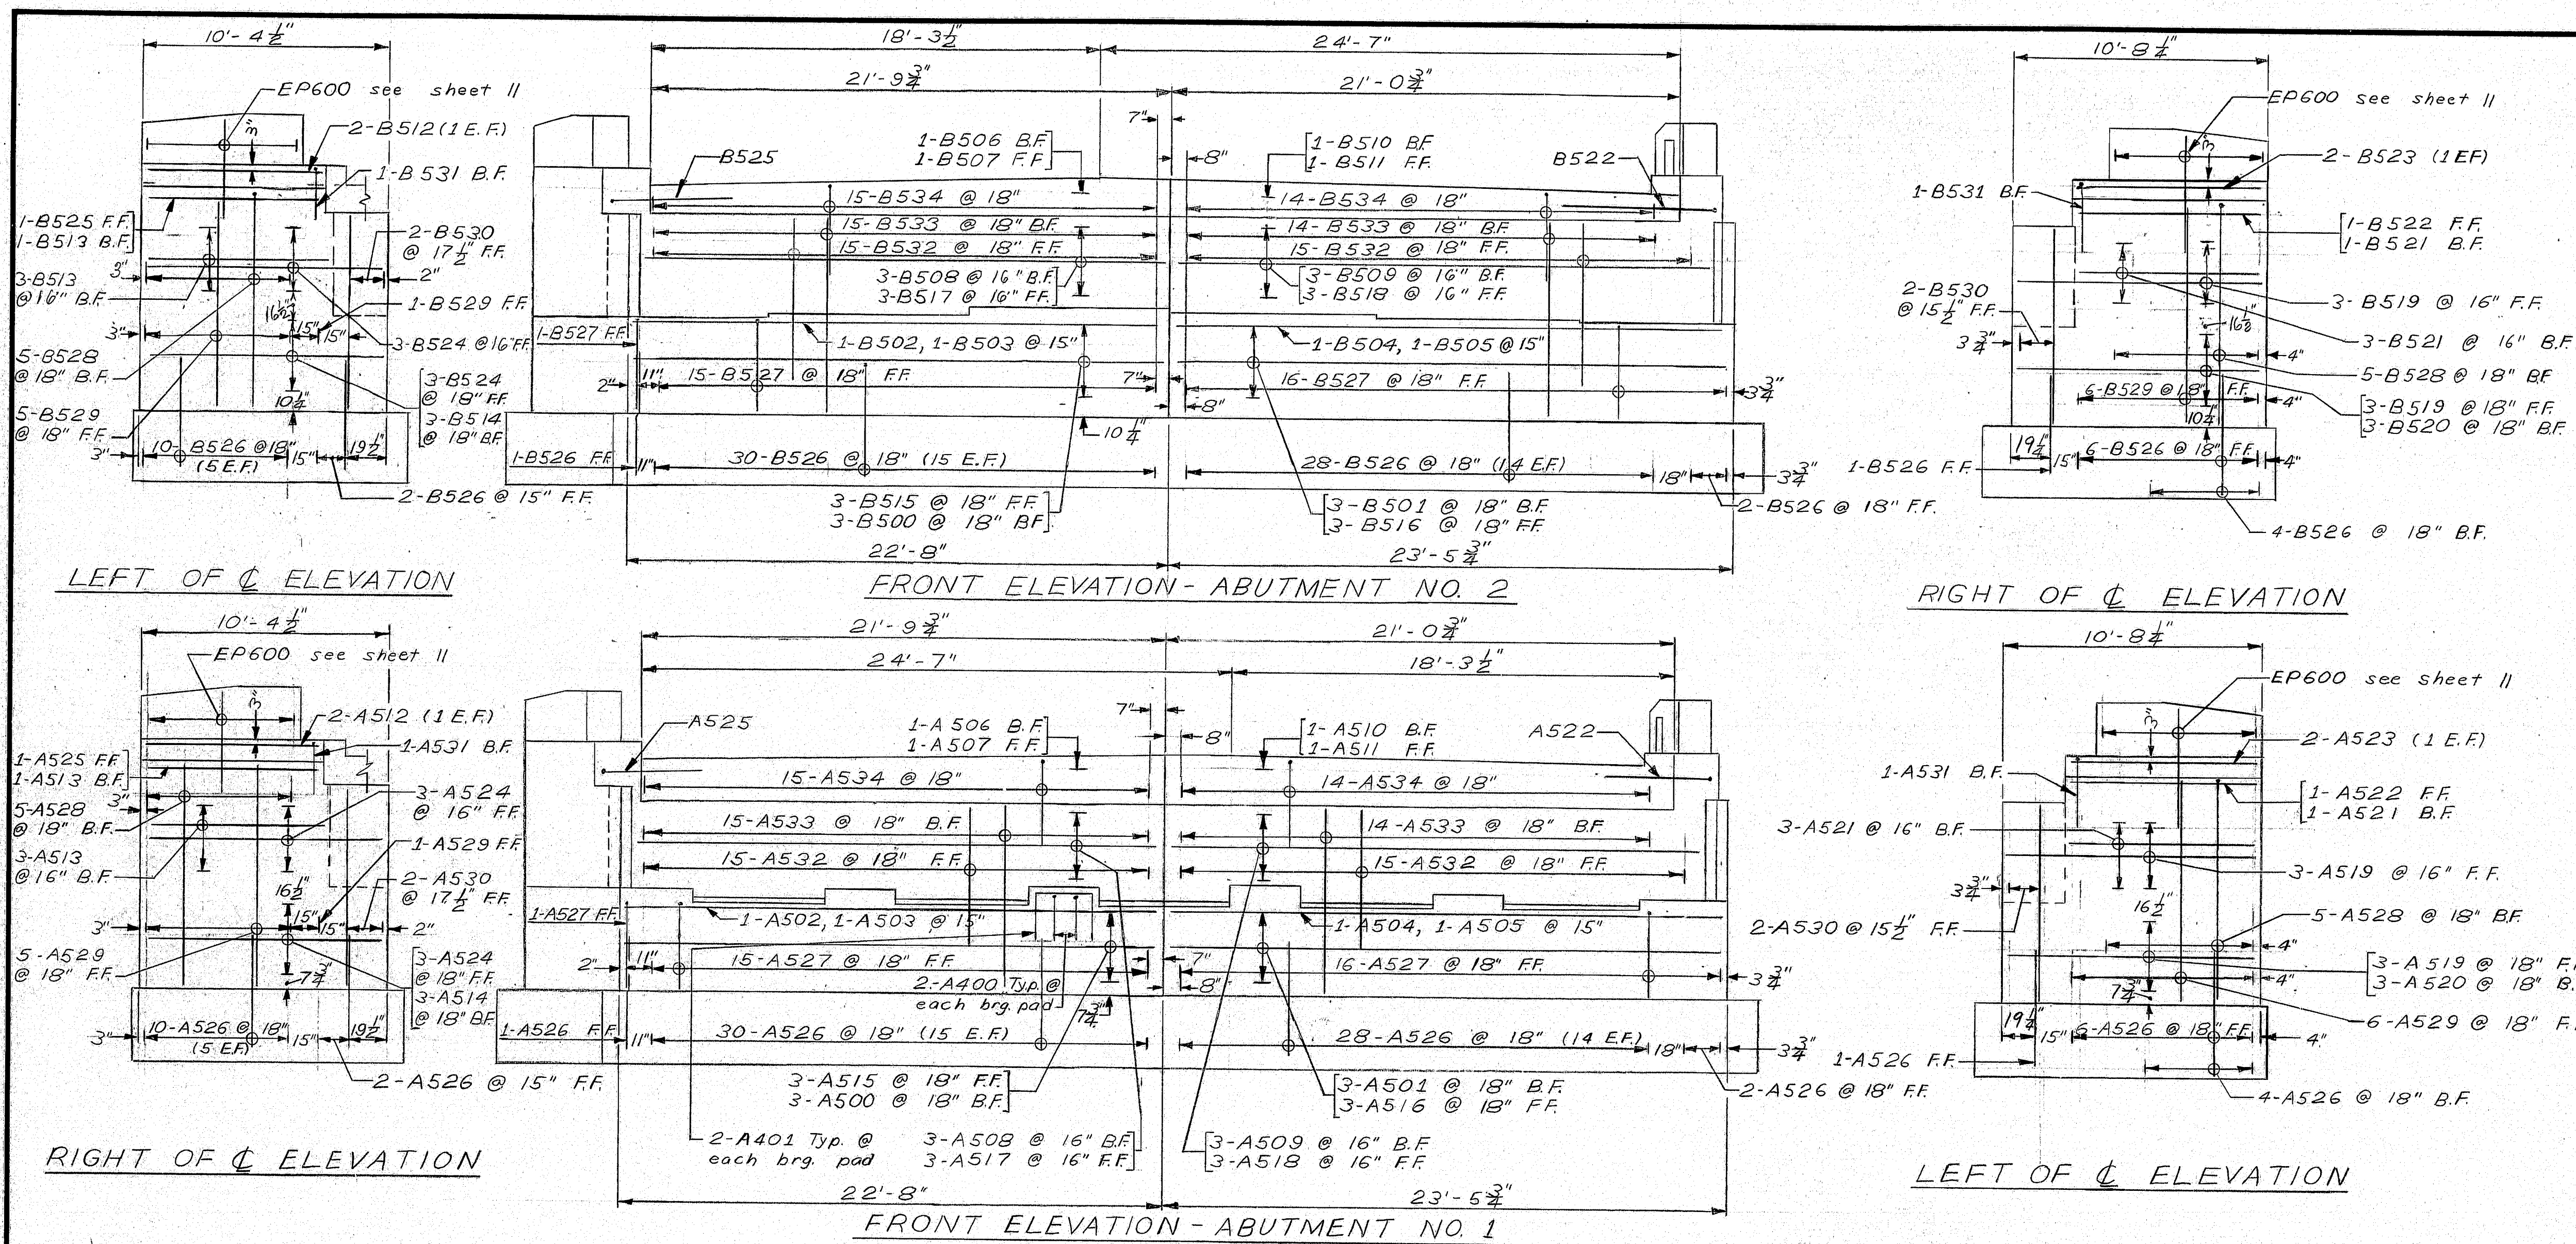 10'-4 1/2"
EP600 see sheet 11
3"
2-B512 (1 E.F.)
1-B531 B.F.
1-B525 F.F.
1-B513 B.F.
2-B530
@ 17 1/2" F.F.
3"
2"
3-B513
@ 16" B.F.
1-B529 F.F.
16 1/2"
15"
15"
3"
3-B524 @ 16" F.F.
5-B528
@ 18" B.F.
3-B524
@ 18" F.F.
3-B514
@ 18" B.F.
10 1/4"
5-B529
@ 18" F.F.
10-B526 @ 18"
(5 E.F.)
3"
15"
19 1/2"
2-B526 @ 15" F.F.
LEFT OF ℄ ELEVATION
18'-3 1/2"
24'-7"
21'-9 3/4"
21'-0 3/4"
7"
8"
B525
1-B506 B.F.
1-B507 F.F.
1-B510 B.F.
1-B511 F.F.
B522
15-B534 @ 18"
14-B534 @ 18"
15-B533 @ 18" B.F.
14-B533 @ 18" B.F.
15-B532 @ 18" F.F.
15-B532 @ 18" F.F.
3-B508 @ 16" B.F.
3-B517 @ 16" F.F.
3-B509 @ 16" B.F.
3-B518 @ 16" F.F.
1-B527 F.F.
1-B502, 1-B503 @ 15"
1-B504, 1-B505 @ 15"
2"
11"
15-B527 @ 18" F.F.
7"
16-B527 @ 18" F.F.
3 3/4"
8"
10 1/4"
1-B526 F.F.
11"
30-B526 @ 18" (15 E.F.)
28-B526 @ 18" (14 E.F.)
18"
3 3/4"
3-B515 @ 18" F.F.
3-B500 @ 18" B.F.
3-B501 @ 18" B.F.
3-B516 @ 18" F.F.
2-B526 @ 18" F.F.
22'-8"
23'-5 3/4"
FRONT ELEVATION - ABUTMENT NO. 2
10'-8 1/4"
EP600 see sheet 11
3"
2-B523 (1 EF)
1-B531 B.F.
1-B522 F.F.
1-B521 B.F.
2-B530
@ 15 1/2" F.F.
3-B519 @ 16" F.F.
16 1/2"
3 3/4"
3-B521 @ 16" B.F.
4"
5-B528 @ 18" B.F.
6-B529 @ 18" F.F.
4"
3-B519 @ 18" F.F.
3-B520 @ 18" B.F.
10 1/4"
19 1/4"
15"
6-B526 @ 18" F.F.
4"
1-B526 F.F.
4-B526 @ 18" B.F.
RIGHT OF ℄ ELEVATION
10'-4 1/2"
EP600 see sheet 11
3"
2-A512 (1 E.F.)
1-A531 B.F.
1-A525 F.F.
1-A513 B.F.
3"
5-A528
@ 18" B.F.
3-A524
@ 16" F.F.
1-A529 F.F.
3-A513
@ 16" B.F.
2-A530
@ 17 1/2" F.F.
16 1/2"
15"
15"
3"
2"
5-A529
@ 18" F.F.
3-A524
@ 18" F.F.
3-A514
@ 18" B.F.
7 3/4"
10-A526 @ 18"
(5 E.F.)
3"
15"
19 1/2"
2-A526 @ 15" F.F.
RIGHT OF ℄ ELEVATION
21'-9 3/4"
21'-0 3/4"
24'-7"
18'-3 1/2"
7"
8"
A525
1-A506 B.F.
1-A507 F.F.
1-A510 B.F.
1-A511 F.F.
A522
15-A534 @ 18"
14-A534 @ 18"
15-A533 @ 18" B.F.
14-A533 @ 18" B.F.
15-A532 @ 18" F.F.
15-A532 @ 18" F.F.
1-A527 F.F.
1-A502, 1-A503 @ 15"
1-A504, 1-A505 @ 15"
2"
11"
15-A527 @ 18" F.F.
7"
16-A527 @ 18" F.F.
3 3/4"
2-A400 Typ. @
each brg. pad
8"
7 3/4"
1-A526 F.F.
11"
30-A526 @ 18" (15 E.F.)
28-A526 @ 18" (14 E.F.)
18"
3 3/4"
3-A515 @ 18" F.F.
3-A500 @ 18" B.F.
3-A501 @ 18" B.F.
3-A516 @ 18" F.F.
2-A526 @ 18" F.F.
2-A401 Typ. @
each brg. pad
3-A508 @ 16" B.F.
3-A517 @ 16" F.F.
3-A509 @ 16" B.F.
3-A518 @ 16" F.F.
22'-8"
23'-5 3/4"
FRONT ELEVATION - ABUTMENT NO. 1
10'-8 1/4"
EP600 see sheet 11
3"
2-A523 (1 E.F.)
1-A531 B.F.
1-A522 F.F.
1-A521 B.F.
3-A521 @ 16" B.F.
3-A519 @ 16" F.F.
3 3/4"
16 1/2"
2-A530 @ 15 1/2" F.F.
5-A528 @ 18" B.F.
4"
3-A519 @ 18" F.
3-A520 @ 18" B.
4"
7 3/4"
6-A529 @ 18" F.
19 1/4"
15"
6-A526 @ 18" F.F.
4"
1-A526 F.F.
4-A526 @ 18" B.F.
LEFT OF ℄ ELEVATION